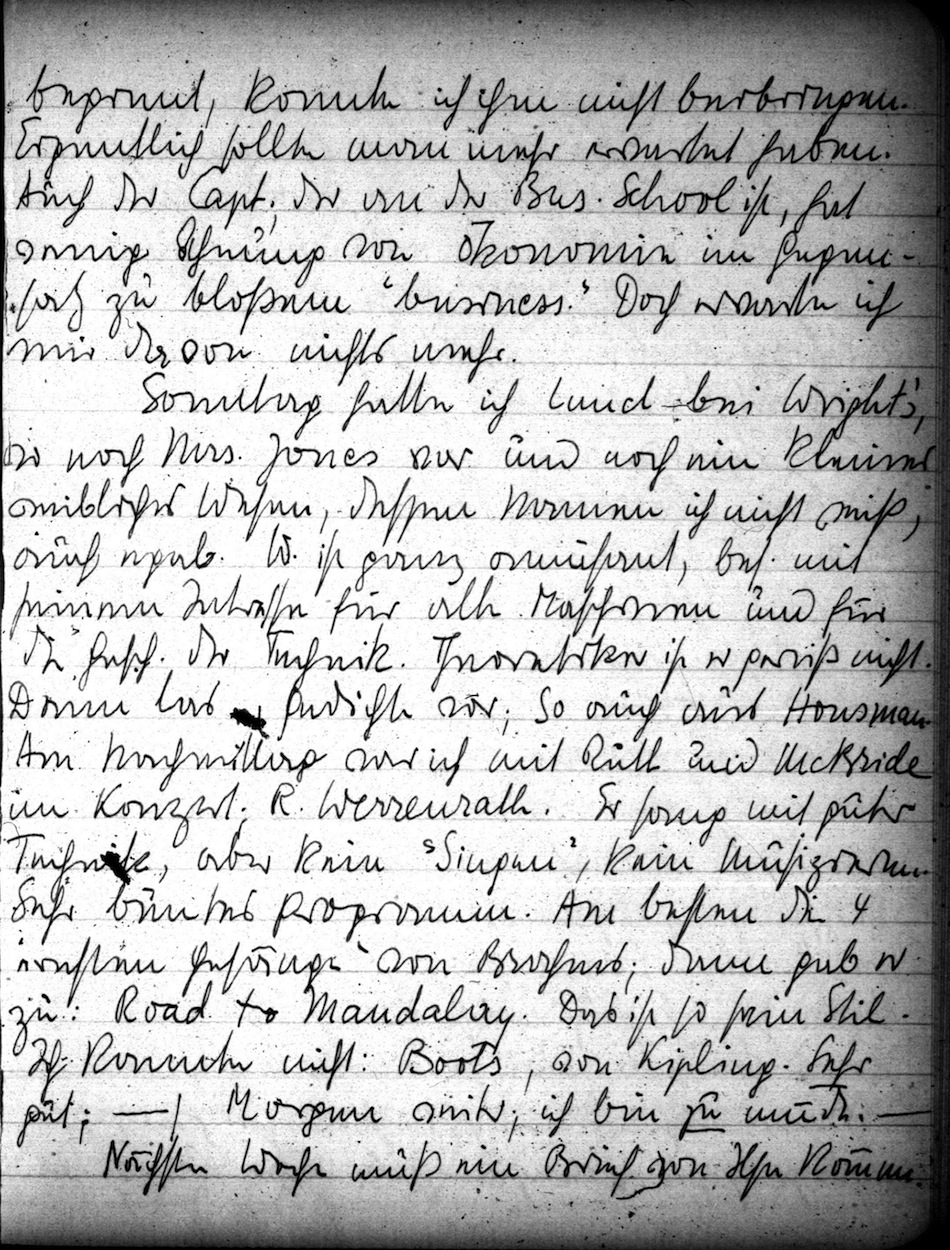 beginnt, konnte ich ihm nicht beibringen.
Eigentlich sollte man mehr erwartet haben.
Auch der Capt., der an der Bus. School ist, hat
wenig Ahnung von Ökonomie im Gegen-
satz zu bloßem "business." Doch erwarte ich
mir davon nichts mehr.
Sonntag hatte ich Lunch bei Wright's,
wo noch Mrs. Jones war und noch ein kleines
weibliches Wesen, dessen Namen ich nicht weiß,
auch ergab. W. ist ganz amüsant, bes. mit
seinem Interesse für alte Maschinen und für
die Gesch. der Technik. Theoretiker ist er gewiß nicht.
Dann las Gedichte vor; so auch aus Housman
Am Nachmittag war ich mit Ruth und McBride
im Konzert: R. Werrenrath. Er sang mit guter
Technik, aber kein "Singen", kein Musizieren.
Sehr buntes Programm. Am besten die 4
ernsten Gesänge von Brahms; dann gab er
zu: Road to Mandalay. Das ist so sein Stil.
Ich kannte nicht: Boots, von Kipling. Sehr
gut; — Morgen weiter, ich bin zu müde. —
Nächste Woche muß ein Brief von Ilse kommen.